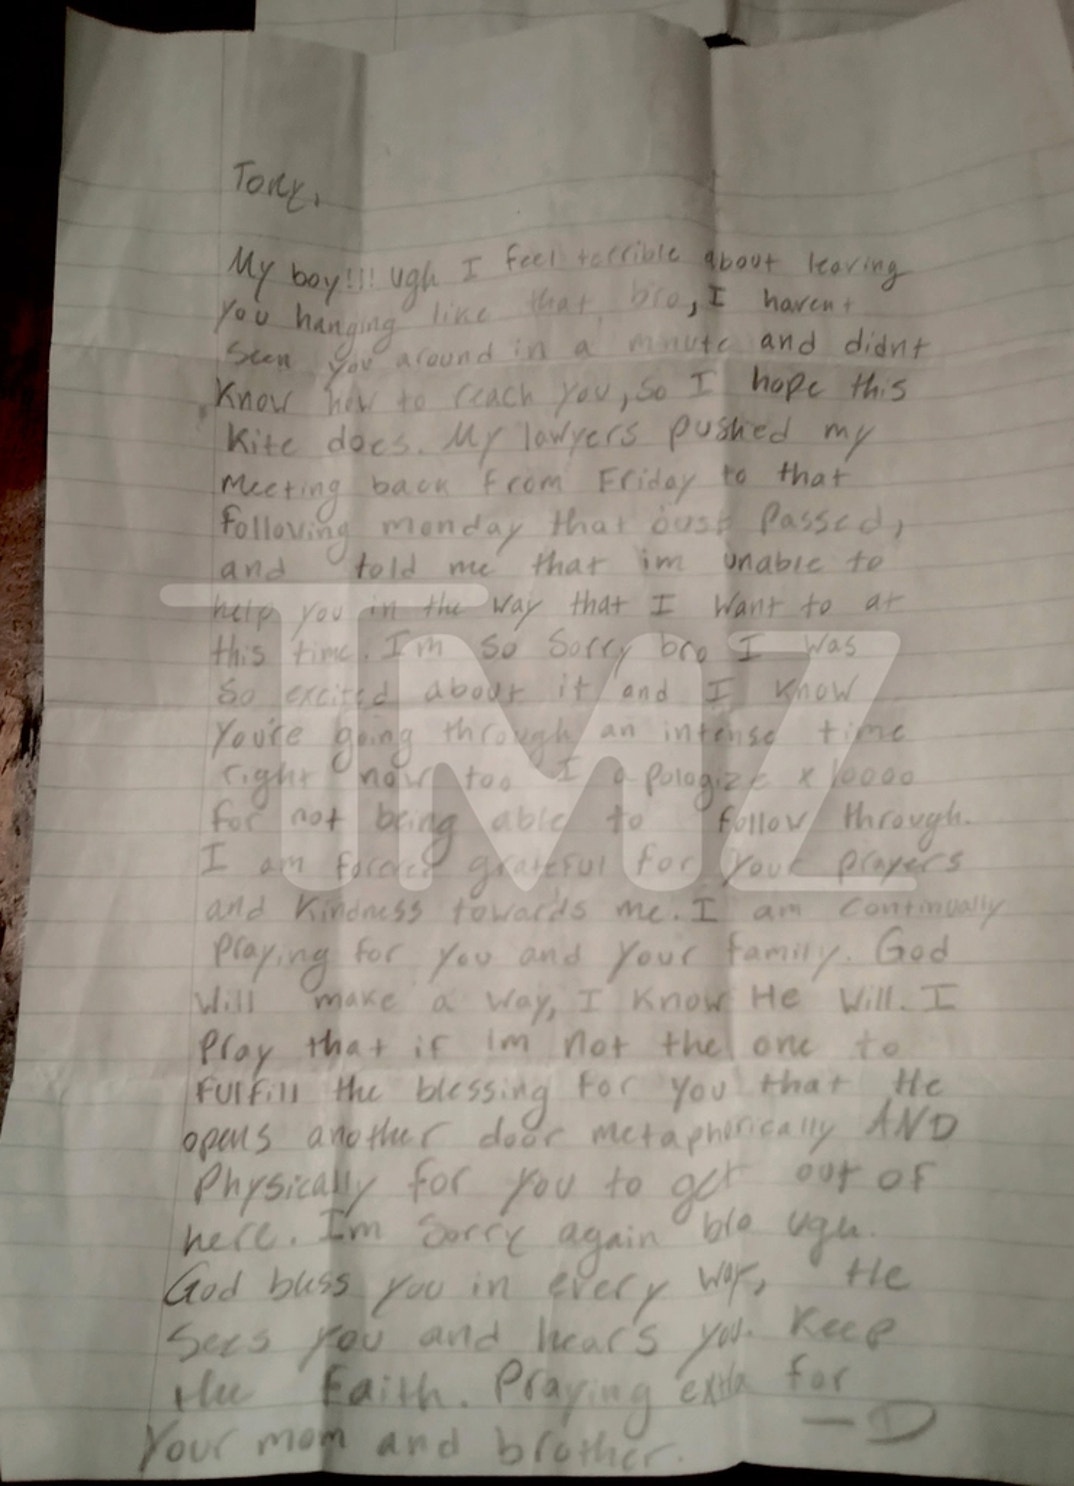 Tony,
My boy!!! ugh I feel terrible about leaving
you hanging like that bro, I havent
seen you around in a minute and didnt
Know how to reach you, so I hope this
Kite does. My lawyers pushed my
meeting back from Friday to that
following monday that just passed,
and told me that im unable to
help you in the way that I want to at
this time. I'm so sorry bro I was
so excited about it and I know
You're going through an intense time
right now too I apologize x 10000
for not being able to follow through.
I am forever grateful for your prayers
and kindness towards me. I am continually
praying for you and your family. God
will make a way, I know He will. I
Pray that if im not the one to
fulfill the blessing for you that He
opens another door metaphorically AND
Physically for you to get out of
here. I'm sorry again bro ugh.
God bless you in every way, He
sees you and hears you. Keep
the Faith. Praying extra for
Your mom and brother.
—D
TMZ